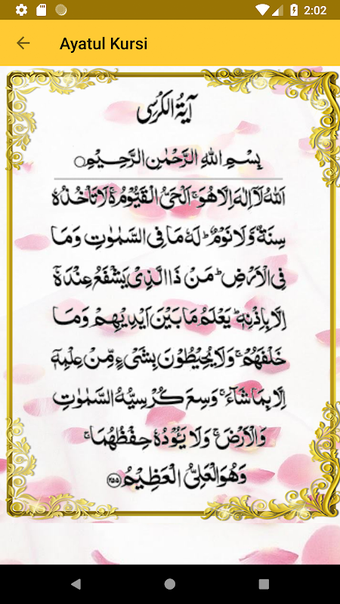 2:02
Ayatul Kursi
آيَةُ الْكُرْسِى
بِسْمِ اللهِ الرَّحْمٰنِ الرَّحِيْمِ ○
اَللهُ لَآ اِلٰهَ اِلَّا هُوَ ۚ اَلْحَىُّ الْقَيُّوْمُ ۚ لَا تَاْخُذُهٗ
سِنَةٌ وَّلَا نَوْمٌ ؕ لَهٗ مَا فِى السَّمٰوٰتِ وَمَا
فِى الْاَرْضِ ؕ مَنْ ذَا الَّذِىْ يَشْفَعُ عِنْدَهٗۤ
اِلَّا بِاِذْنِهٖ ؕ يَعْلَمُ مَا بَيْنَ اَيْدِيْهِمْ وَمَا
خَلْفَهُمْ ۚ وَلَا يُحِيْطُوْنَ بِشَىْءٍ مِّنْ عِلْمِهٖۤ
اِلَّا بِمَا شَآءَ ۚ وَسِعَ كُرْسِيُّهُ السَّمٰوٰتِ
وَالْاَرْضَ ۚ وَلَا يَـُٔوْدُهٗ حِفْظُهُمَا ۚ
وَهُوَ الْعَلِىُّ الْعَظِيْمُ ﴿۲۵۵﴾